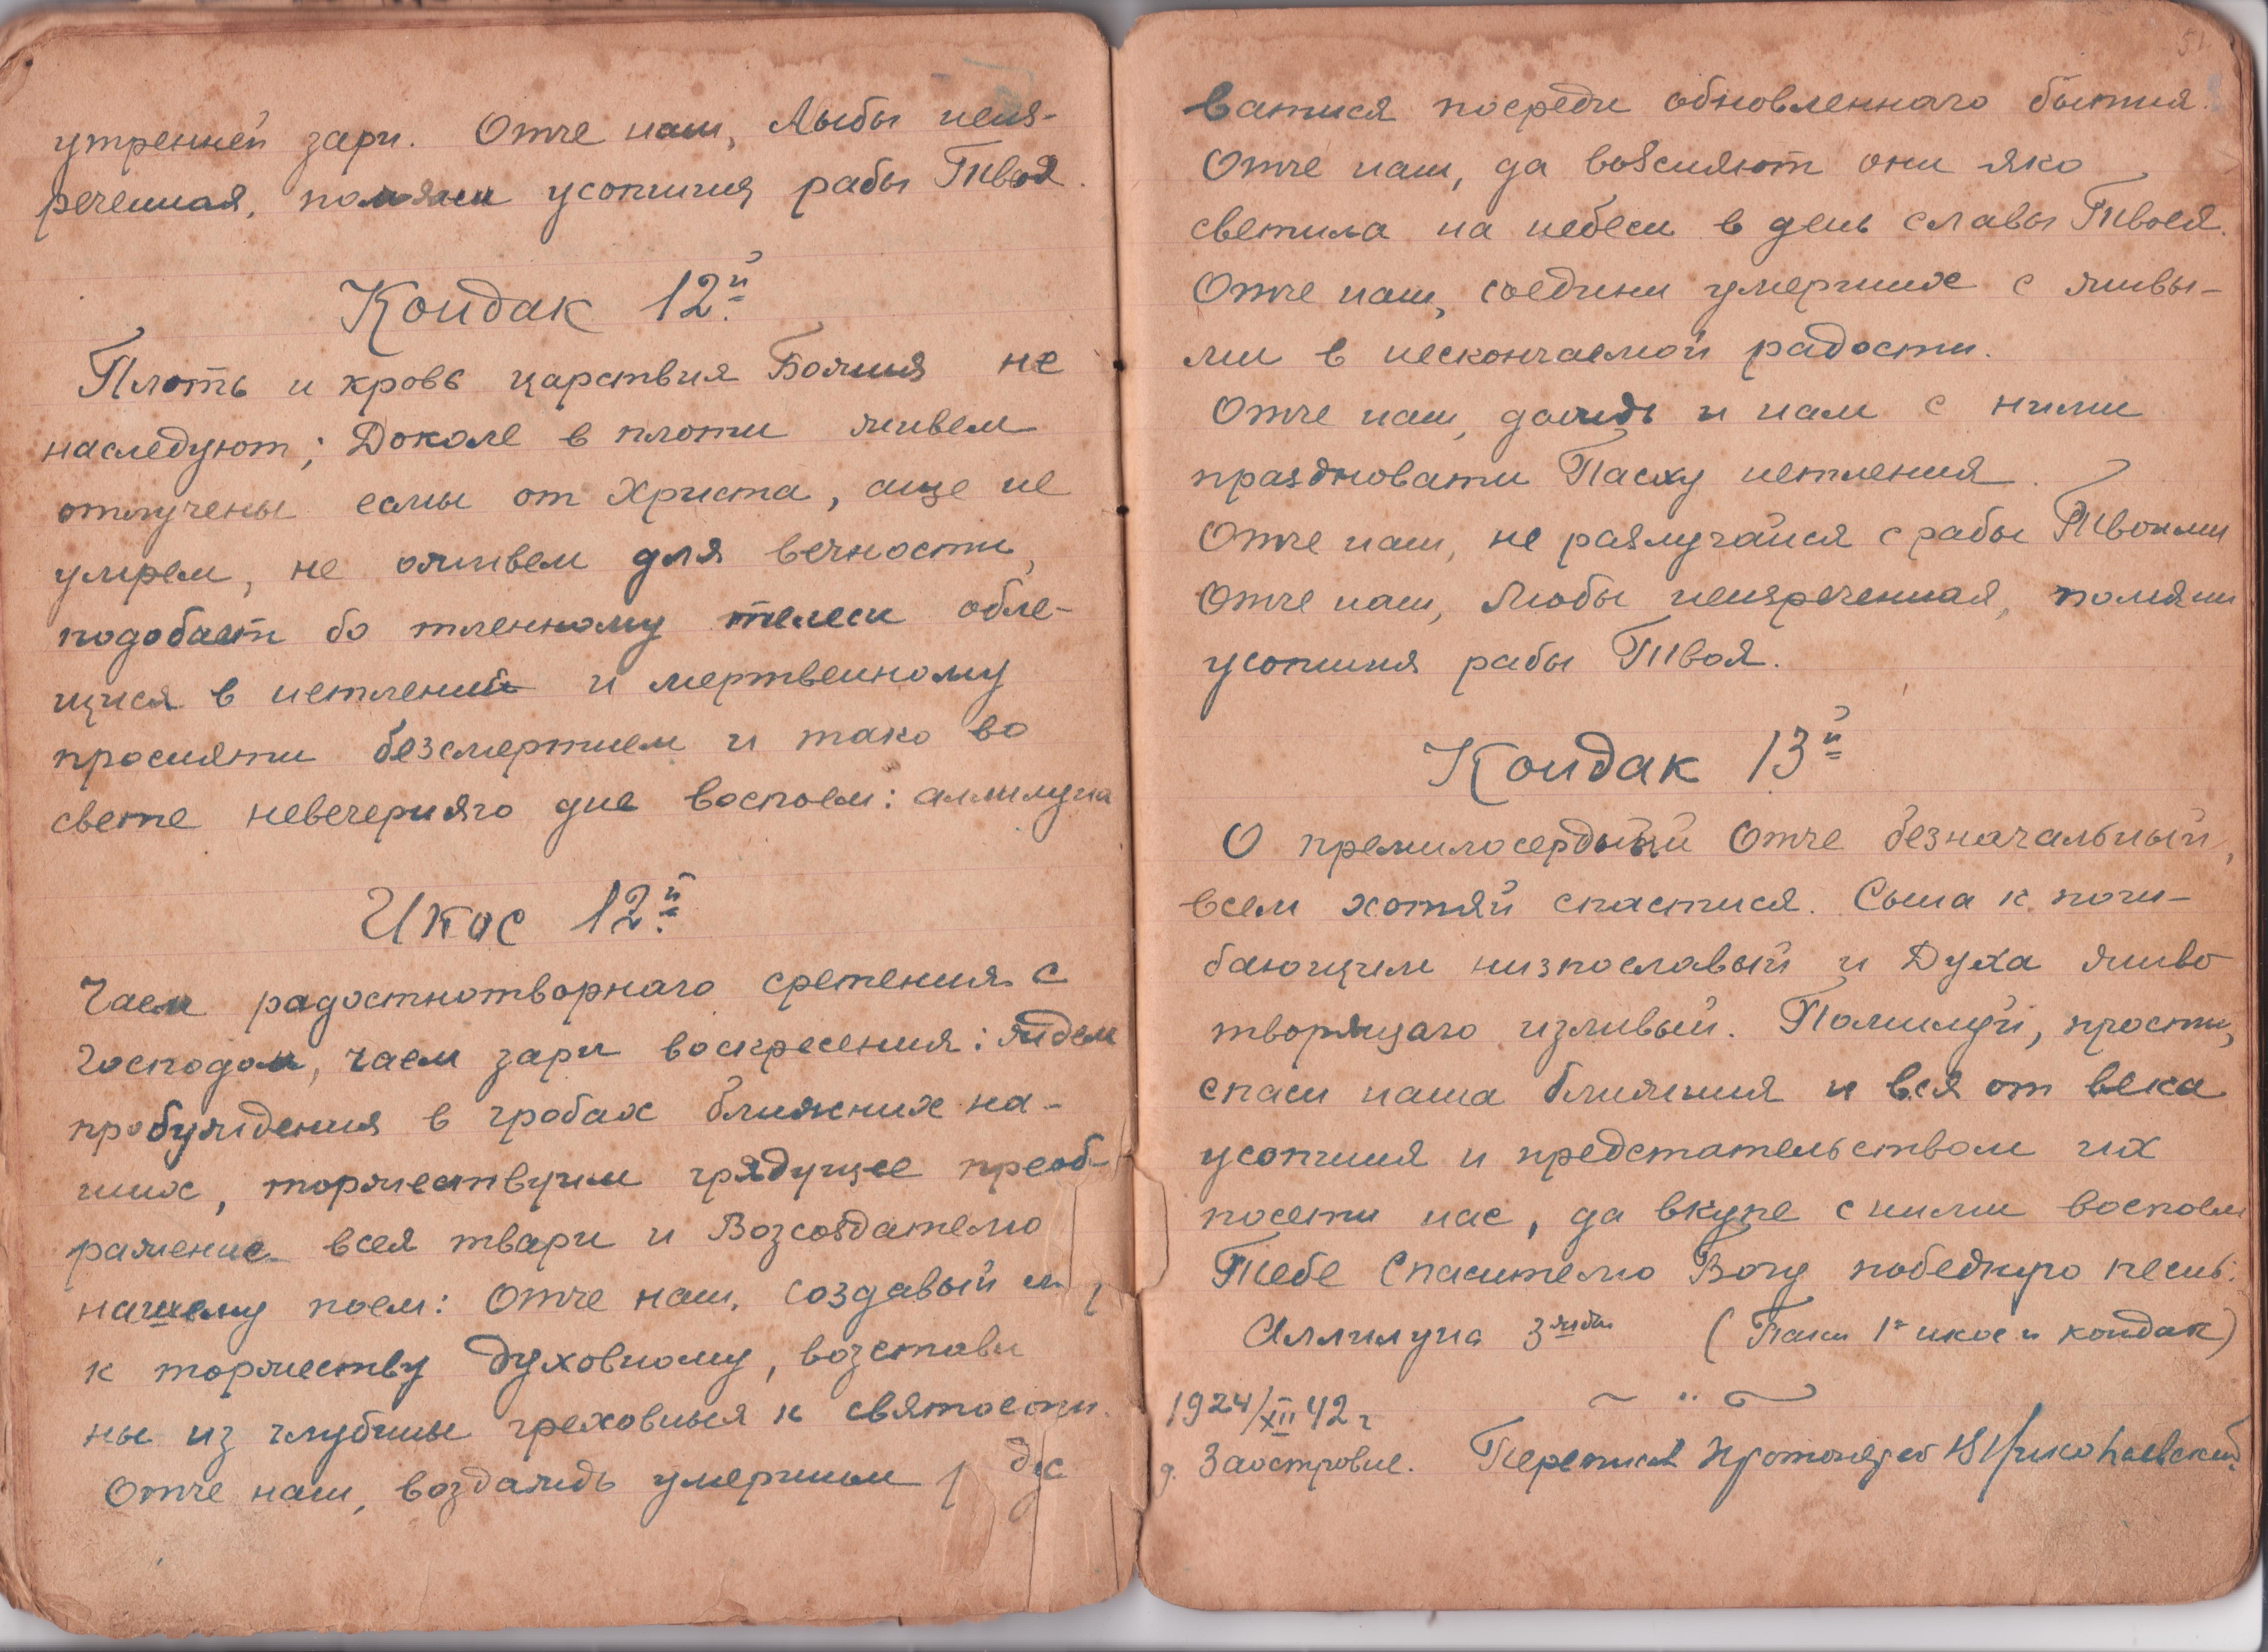 утренней зари. Отче наш, Любы неиз-
реченная, помяни усопшия рабы Твоя.
Кондак 12й
Плоть и кровь царствия Божия не
наследуют; Доколе в плоти живем
отлучены есмы от Христа, аще не
умрем, не оживем для вечности,
подобает бо тленному телеси обле-
щися в нетлений и мертвенному
просияти безсмертием и тако во
свете невечерняго дне воспоем: аллилуиа
Икос 12й
Чаем радостнотворнаго сретения с
Господом, чаем зари воскресения: ждем
пробуждения в гробах ближних на-
ших, торжествуим грядущее преоб-
ражение всея твари и Возсоздателю
нашему поем: Отче наш, создавый
к торжеству духовному, возстави
ны из глубины греховныя к святости.
Отче наш, воздаждь умершим
ватися посреди обновленнаго бытия.
Отче наш, да возсияют они яко
светила на небеси в день славы Твоея.
Отче наш, соедини умерших с живы-
ми в нескончаемой радости.
Отче наш, даждь и нам с ними
праздновати Пасху нетления.
Отче наш, не разлучайся с рабы Твоими
Отче наш, Любы неизреченная, помяни
усопшия рабы Твоя.
Кондак 13й
О премилосердый Отче безначальный,
всем хотяй спастися. Сына к поги-
бающим низпославый и Духа живо
творящаго изливый. Помилуй, прости,
спаси наша ближния и вся от века
усопшия и предстательством их
посети нас, да вкупе с ними воспоем
Тебе Спасителю Богу победную песнь:
Аллилуиа 3жды (Паки 1й икос и кондак)
1924/XII 42 г
д. Заостровие. Переписал Протоиерей